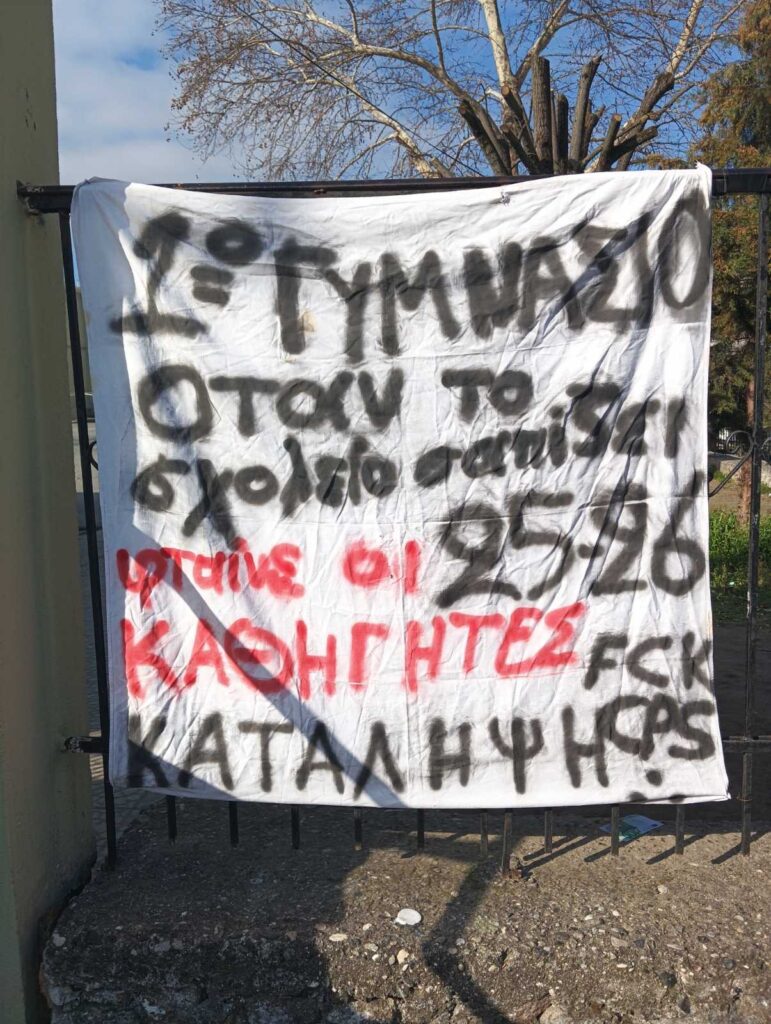 1=ο ΓΥΜΝΑΣΙΟ
Οταν το
σχολείο σαπίζει
25-26
φταίνε οι
ΚΑΘΗΓΗΤΕΣ
FCK
CPS
ΚΑΤΑΛΗΨΗ!